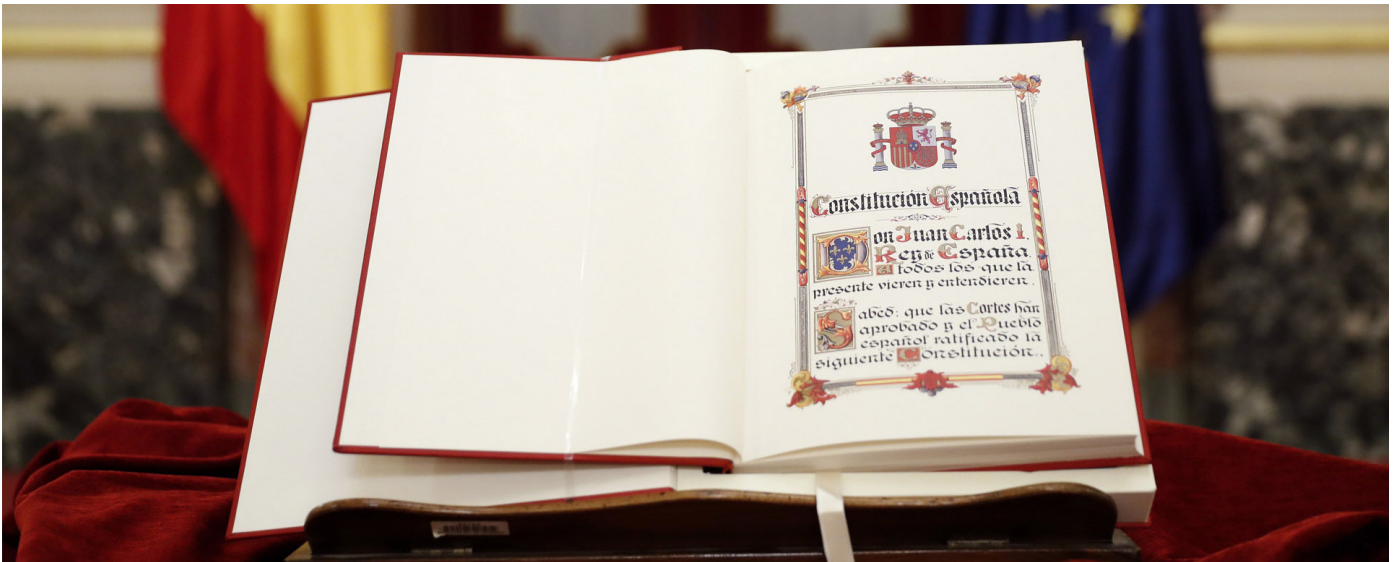 Constitución Española
Don Juan Carlos I,
Rey de España.
A todos los que la
presente vieren y entendieren.
Sabed: que las Cortes han
aprobado y el Pueblo
español ratificado la
siguiente Constitución..